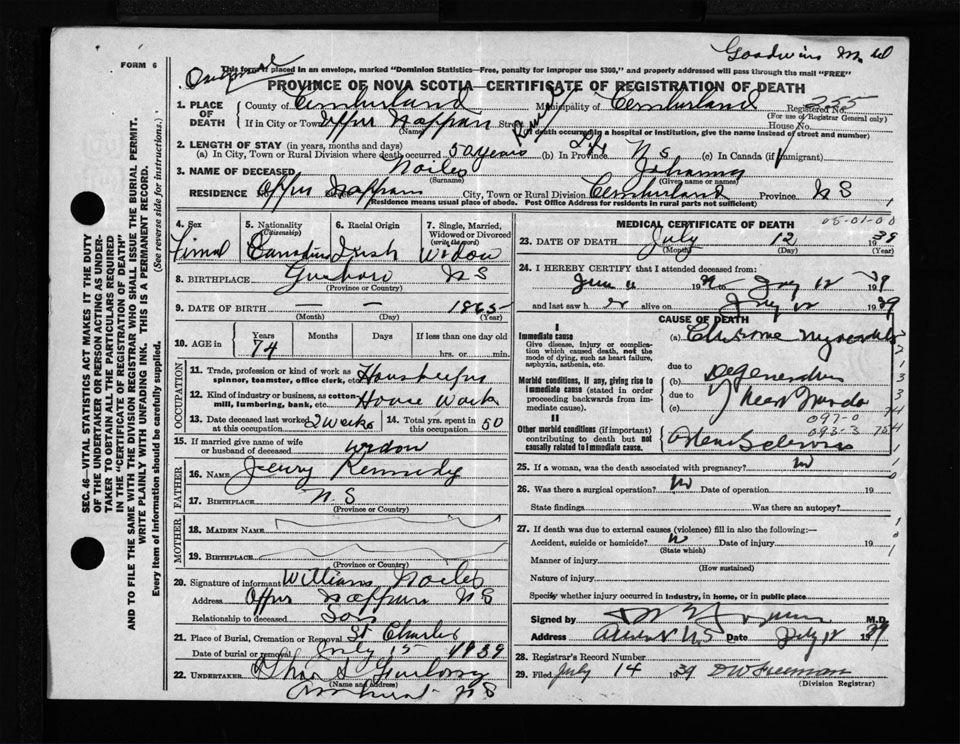 FORM 6
Original
Goodwin
This form if placed in an envelope, marked "Dominion Statistics—Free, penalty for improper use $300," and properly addressed will pass through the mail "FREE"
PROVINCE OF NOVA SCOTIA—CERTIFICATE OF REGISTRATION OF DEATH
1. PLACE OF DEATH County of Cumberland Municipality of Cumberland Registered No. 255
(For use of Registrar General only)
If in City or Town Upper Nappan Street House No.
(Name) (If death occurred in a hospital or institution, give the name instead of street and number)
2. LENGTH OF STAY (in years, months and days)
(a) In City, Town or Rural Division where death occurred 50 years (b) In Province N S (c) In Canada (if immigrant)
3. NAME OF DECEASED Noiles Johanna
(Surname) (Given name or names)
RESIDENCE Upper Nappan Street City, Town or Rural Division Cumberland Province N S
(Residence means usual place of abode. Post Office Address for residents in rural parts not sufficient)
4. Sex 5. Nationality (Citizenship) 6. Racial Origin 7. Single, Married, Widowed or Divorced (write the word)
Canadian Irish Widow
8. BIRTHPLACE N S
(Province or Country)
9. DATE OF BIRTH — — 1865
(Month) (Day) (Year)
10. AGE in Years Months Days If less than one day old
74 hrs. or min.
OCCUPATION
11. Trade, profession or kind of work as spinner, teamster, office clerk, etc. Housekeeper
12. Kind of industry or business, as cotton mill, lumbering, bank, etc. House Work
13. Date deceased last worked at this occupation 2 Weeks 14. Total yrs. spent in this occupation 50
15. If married give name of wife or husband of deceased widow
FATHER
16. NAME Kennedy
17. BIRTHPLACE N. S
(Province or Country)
MOTHER
18. MAIDEN NAME
19. BIRTHPLACE
(Province or Country)
20. Signature of informant William Noiles
Address Upper Nappan N S
Relationship to deceased Son
21. Place of Burial, Cremation or Removal St Charles
Date of burial or removal July 15 1939
22. UNDERTAKER
(Name and address)
Amherst N S
MEDICAL CERTIFICATE OF DEATH
05-01-00
23. DATE OF DEATH July 12 1939
(Month) (Day) (Year)
24. I HEREBY CERTIFY that I attended deceased from
June to July 12 1939
and last saw h er alive on July 12 1939
CAUSE OF DEATH
I
Immediate cause
Give disease, injury or complication which caused death, not the mode of dying, such as heart failure, asphyxia, asthenia, etc.
(a) Chronic Myocardial
due to
Morbid conditions, if any, giving rise to immediate cause (stated in order proceeding backwards from immediate cause).
(b) Degeneration
due to
(c)
093-3
II
Other morbid conditions (if important) contributing to death but not causally related to immediate cause.
25. If a woman, was the death associated with pregnancy? No
26. Was there a surgical operation? No Date of operation 19
State findings Was there an autopsy?
27. If death was due to external causes (violence) fill in also the following:—
Accident, suicide or homicide? Date of injury 19
(State which)
Manner of injury
(How sustained)
Nature of injury
Specify whether injury occurred in industry, in home, or in public place
Signed by M.D.
Address Amherst NS Date July 12 1939
28. Registrar's Record Number
29. Filed July 14 1939 D W Freeman
(Division Registrar)
SEC. 46—VITAL STATISTICS ACT MAKES IT THE DUTY
OF THE UNDERTAKER OR PERSON ACTING AS UNDER-
TAKER TO OBTAIN ALL THE PARTICULARS REQUIRED
IN THE "CERTIFICATE OF REGISTRATION OF DEATH"
AND TO FILE THE SAME WITH THE DIVISION REGISTRAR WHO SHALL ISSUE THE BURIAL PERMIT.
WRITE PLAINLY WITH UNFADING INK. THIS IS A PERMANENT RECORD.
Every item of information should be carefully supplied. (See reverse side for instructions.)